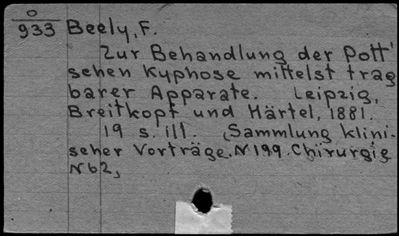 O
933 Beely, F.
Zur Behandlung der Pott'
schen Kyphose mittelst trag
barer Apparate. Leipzig,
Breitkopf und Härtel, 1881.
19 s. Ill. (Sammlung klini-
scher Vorträge. N 199. Chirurgie
N 62,